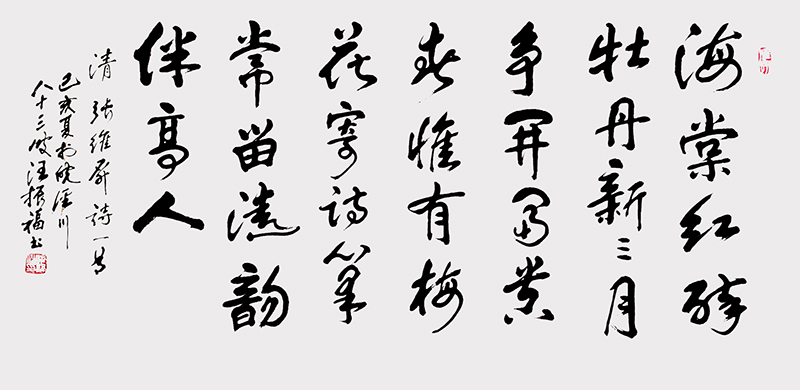 海棠红醉
牡丹新三月
争開富贵
春惟有梅
花寄诗笔
常留清韵
伴高人
清 张维屏 詩一首
己亥夏於皖泾川
八十三叟汪振福书